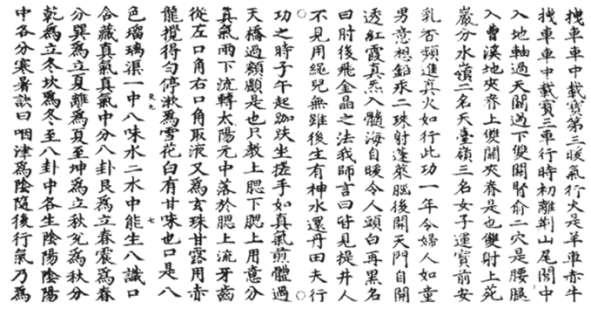 車車中載寶第三暖氣行火是羊車赤牛
車車中載寶三車行時初離荆山尾閭中
入地軸過天関過下雙関腎俞二穴是腰腿
入曹溪地夾脊上雙関夾脊是也雙射上苑
巖分水嶺二名天臺嶺三名女子運寶前安
乳香頻進真火如行此功一年令婦人如童
男意想鉛汞二珠射蓬萊腦後開天門自開
透紅霞真炁入髓海自暖令人頭白再黑名
曰肘後飛金晶之法我師言曰皆見提井人
不見用繩兒無雖後生有神水還丹田夫行
功之時子午起跏趺坐搓手如真氣煎體過
天橋過顖顖是也只教上腭下腭上用意分
真氣雨下流轉太陽元中落於腭上流牙齒
從左口角右口角取液又爲玄珠甘露用赤
龍攪得匀停漱爲雪花白有甘味也口是八
色瑠璃渠一中八味水二水中能生八識口
含藏真氣真氣中分八卦艮爲立春震爲春
分巽爲立夏離爲夏至坤爲立秋兊爲秋分
乾爲立冬坎爲冬至八卦中各生陰陽陰陽
中各分寒暑訣曰咽津爲陰隨後行氣乃爲